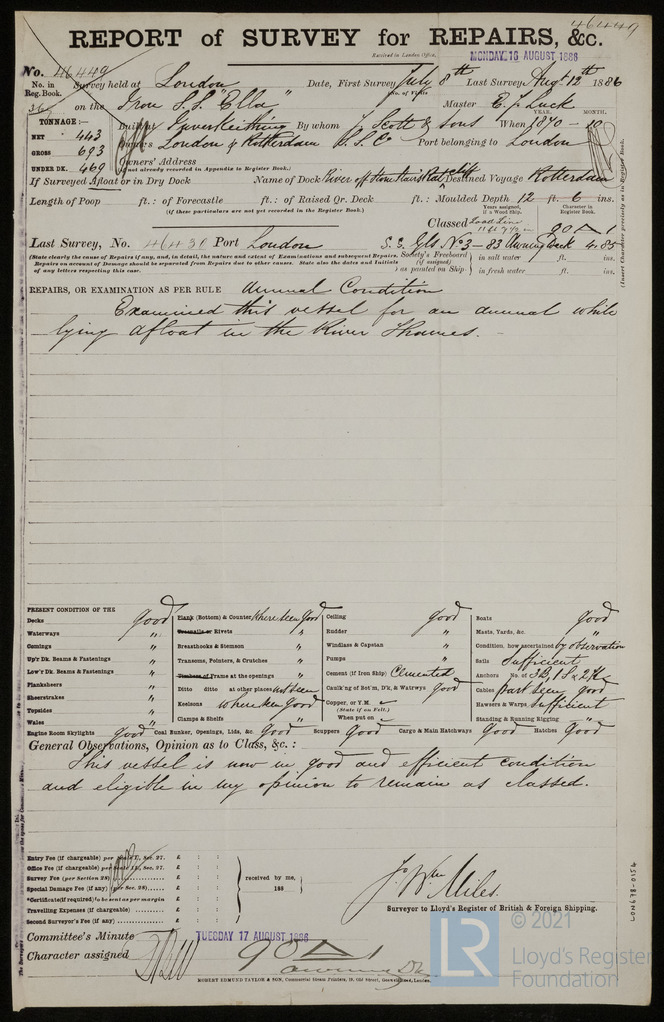 46449
REPORT of SURVEY for REPAIRS, &c.
Received in London Office, MONDAY, 16 AUGUST 1886
No. 46449
No. in Reg. Book. Survey held at London Date, First Survey July 8th Last Survey Augt 12th 1886
36 on the Iron S.S. "Ella" Master E. J. Luck
TONNAGE:— Built at Inverkeithing By whom J Scott & Sons When YEAR. 1870 MONTH. 10
NET 443 Owners London & Rotterdam S.S.Co Port belonging to London
GROSS 693 Owners' Address
UNDER DK. 469 (if not already recorded in Appendix to Register Book.)
If Surveyed Afloat or in Dry Dock Name of Dock River off Destined Voyage Rotterdam
Length of Poop ft.: of Forecastle ft.: of Raised Qr. Deck ft.: Moulded Depth 12 ft. 6 ins.
(if these particulars are not yet recorded in the Register Book.)
Years assigned, if a Wood Ship. Character in Register Book.
Classed Load Line 90 A 1
Last Survey, No. 46430 Port London S.S. Gls No 3 – 83 Awning Deck 4.85
(State clearly the cause of Repairs if any, and, in detail, the nature and extent of Examinations and subsequent Repairs.
Repairs on account of Damage should be separated from Repairs due to other causes. State also the dates and Initials
of any letters respecting this case.
Society's Freeboard (if assigned) as painted on Ship
in salt water ft. ins.
in fresh water ft. ins.
(Insert Character precisely as in Register Book.)
REPAIRS, OR EXAMINATION AS PER RULE Annual Condition
Examined this vessel for an annual while
lying afloat in the River Thames.
PRESENT CONDITION OF THE
Decks good
Waterways "
Comings "
Up'r Dk. Beams & Fastenings "
Low'r Dk. Beams & Fastenings "
Planksheers "
Sheerstrakes "
Topsides "
Wales "
Plank (Bottom) & Counter where seen good
Treenails or Rivets "
Breasthooks & Stemson "
Transoms, Pointers, & Crutches "
Timbers of Frame at the openings "
Ditto ditto at other places not seen
Keelsons where seen good
Clamps & Shelfs
Ceiling good
Rudder "
Windlass & Capstan "
Pumps "
Cement (if Iron Ship) Cemented
Caulk'ng of Bot'm, D'k, & Watrwys good
Copper, or Y.M.
(State if on Felt.)
When put on
Boats good
Masts, Yards, &c. "
Condition, how ascertained by observation
Sails Sufficient
Anchors No. of 3B, 1S, 2K
Cables part seen good
Hawsers & Warps Sufficient
Standing & Running Rigging "
Engine Room Skylights good Coal Bunker, Openings, Lids, &c. good Scuppers good Cargo & Main Hatchways good Hatches good
General Observations, Opinion as to Class, &c.:
This vessel is now in good and efficient condition
and eligible in my opinion to remain as classed.
Entry Fee (if chargeable) per Scale I., Sec. 27. £ : :
Office Fee (if chargeable) per Scale II., Sec. 27. £ : :
Survey Fee (per Section 28) £ : :
Special Damage Fee (if any) (per Sec. 28) £ : :
*Certificate (if required) to be sent as per margin £ : :
Travelling Expenses (if chargeable) £ : :
Second Surveyor's Fee (if any) £ : :
received by me,
188
J. Wm Miles
Surveyor to Lloyd's Register of British & Foreign Shipping.
Committee's Minute TUESDAY 17 AUGUST 1886
Character assigned 90 A 1
Awning Dk
ROBERT EDMUND TAYLOR & SON, Commercial Steam Printers, 19, Old Street, Goswell Road, London.
LON678-0154
LR
© 2021
Lloyd's Register
Foundation